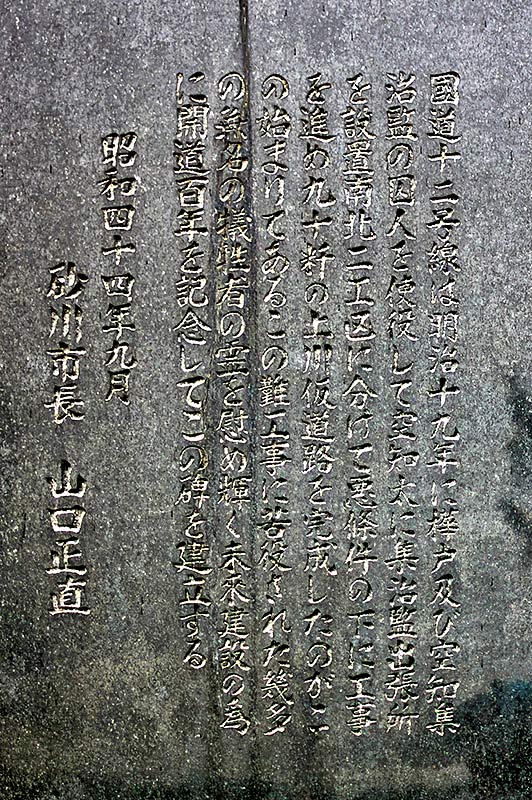 國道十二号線は明治十九年に樺戸及び空知集
治監の囚人を使役して空知太に集治監出張所
を設置南北二工区に分けて悪條件の下に工事
を進め九十粁の上川仮道路を完成したのがこ
の始まりてあるこの難工事に苦役された幾多
の無名の犠牲者の霊を慰め輝く未来建設の為
に開道百年を記念してこの碑を建立する
昭和四十四年九月
砂川市長 山口正直